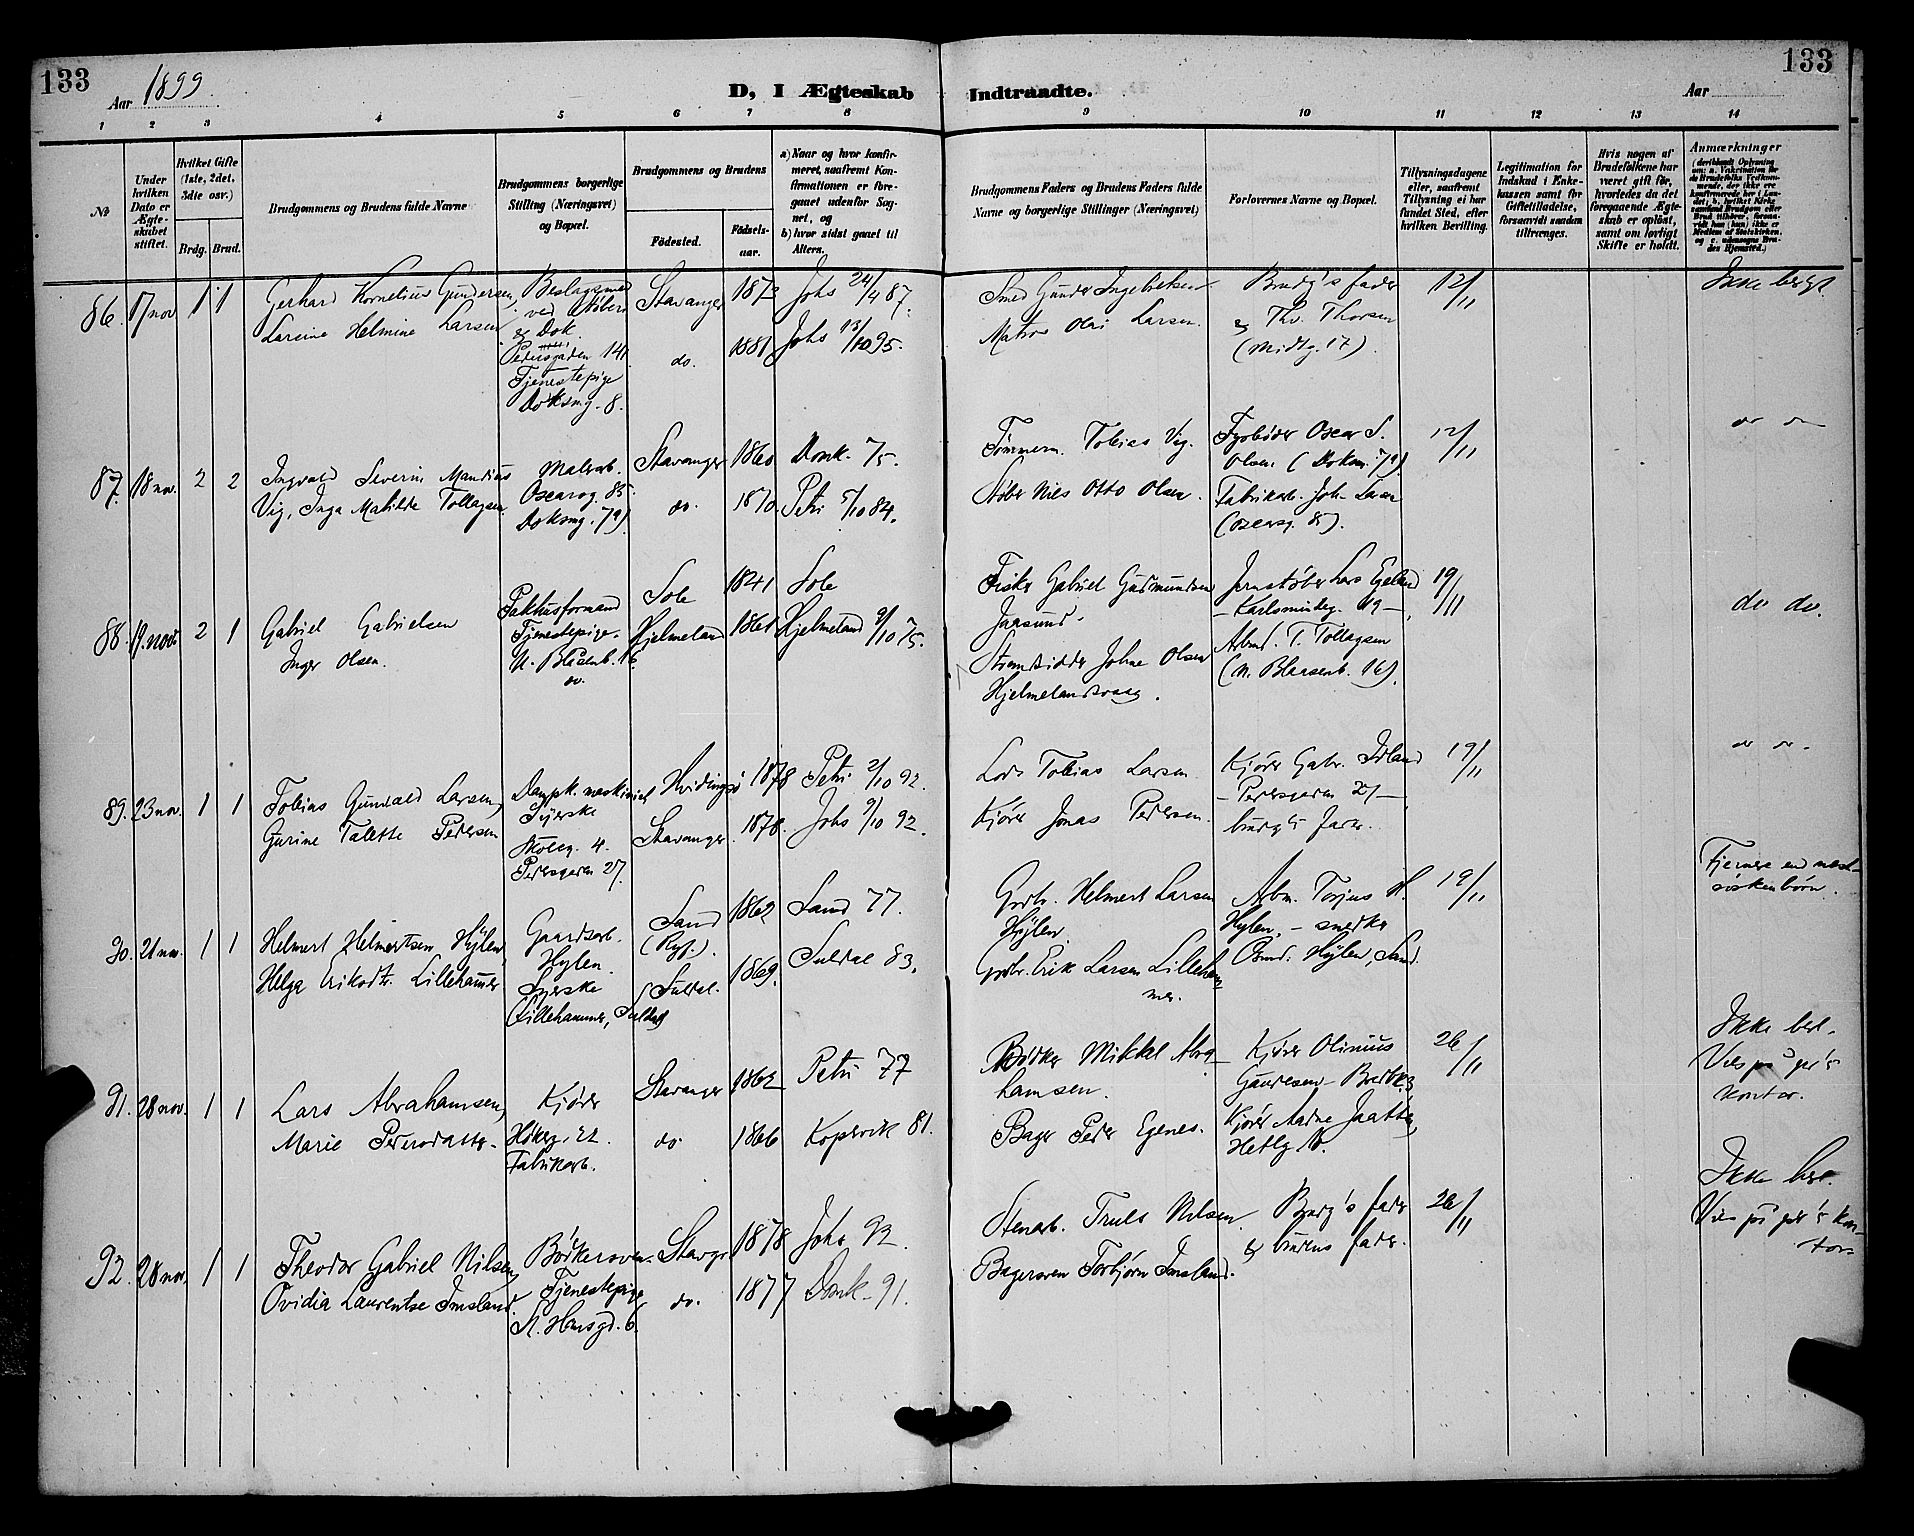 133
Aar 1899
D, I Ægteskab Indtraadte.
Aar
133
1 2 3 4 5 6 7 8 9 10 11 12 13 14
№
Under hvilken Dato er Ægteskabet stiftet.
Hvilket Gifte (1ste, 2det, 3die osv.)
Brdg. Brud.
Brudgommens og Brudens fulde Navne
Brudgommens borgerlige Stilling (Næringsvei) og Bopæl.
Brudgommens og Brudens
Födested.
Födselsaar.
a) Naar og hvor konfirmeret, saafremt Konfirmationen er foregaaet udenfor Sognet, og
b) hvor sidst gaaet til Alters.
Brudgommens Faders og Brudens Faders fulde Navne og borgerlige Stillinger (Næringsvei)
Forlovernes Navne og Bopæl.
Tillysningsdagene eller, saafremt Tillysning ei har fundet Sted, efter hvilken Bevilling.
Legitimation for Indskud i Enkekassen samt for Giftetilladelse, forsaavidt saadan tiltrænges.
Hvis nogen af Brudefolkene har været gift för, hvorledes da det foregaaende Ægteskab er oplöst, samt om lovligt Skifte er holdt.
Anmærkninger
86. 17 nov 1 1
Gerhard Kornelius Gundersen,
Larsine Helmine Larsen
Beslagsmed
ved Stöberi
& Dok
Pedersgaden 141
Tjenestepige
Doksmg. 8.
Stavanger 1873 Johs 24/4 87.
do. 1881 Johs 13/10 95.
Smed Gunder Ingebretsen
Matros Olai Larsen.
Brudg's fader
& Thv. Thorsen
(Midtg. 17).
12/11
Ikke besl.
87. 18 nov. 2 2
Ingvald Severin Mandius
Vig, Inga Matilde Tollagsen
Malerarb.
Oscarsg. 85.
Doksmg. 79)
Stavanger 1860 Domk. 75.
do. 1870. Petri 5/10 84.
Tømmerm. Tobias Vig.
Støber Niels Otto Olsen.
Fyrbøder Oscar S.
Olsen (Doksm. 79)
Fabrikarb. Joh. Lasen
(Oscarsg. 85).
12/11
do do
88. 19. nov. 2 1
Gabriel Gabrielsen
Inger Olsen.
Pakhusformand
Tjenestepige.
N. Blåsenb. 16
do.
Sole 1841 Sole
Hjelmeland 1861 Hjelmeland 9/10 75.
Fisker Gabriel Gudmundsen
Jaasund.
Strandsidder Johne Olsen
Hjelmelandsvaag.
Jernstøber Lars Egeland
– Karlsmindeg. 49 –
Arbmd. T. Tollagsen
(N. Blaasenb. 16).
19/11
do do.
89. 23 nov. 1 1
Tobias Gunvald Larsen,
Gurine Talette Pedersen
Dampk. maskinist
Syerske
Skoleg. 4.
Pedersgaden 27.
Hvidingsö 1878 Petri 2/10 92.
Stavanger. 1878. Johs 9/10 92.
Lods Tobias Larsen
Kjörer Jonas Pedersen.
Kjörer Gabr. Idland
– Pedersgaden 27 –
brudg's fader.
19/11
do do.
90. 21 nov. 1 1
Helmert Helmertsen Hylen,
Helga Eriksdtr. Lillehammer
Gaardsarb.
Hylen.
Syerske
(Lillehammer, Suldal)
Sand (Ryf.). 1862 Sand 77.
Suldal. 1869. Suldal 83.
Grdbr. Helmert Larsen
Hylen
Grdbr. Erik Larsen Lilleham
mer.
Arbm. Torjus H.
Hylen, – snedker
Osmd. Hylen, Sand.
19/11
Fjernere en næst-
söskenbörn.
91. 28 nov. 1 1
Lars Abrahamsen,
Marie Pedersdatter.
Kjörer
Høkerg. 22.
Fabrikarb.
Stavanger 1862 Petri 77
do. 1866 Kopervik 81.
Bödker Mikkel Abra
hamsen.
Bager Peder Egenes.
Kjörer Olinius
Gaudesen Bredbk. 3
Kjörer Aadne Jaatten,
Hetlg 10.
26/11
Ikke besl.
Vies på ger's
kontor.
92. 28 nov. 1 1
Theodor Gabriel Nilsen,
Ovidia Laurentse Imsland.
Bödkersven.
Tjenestepige
N. Hansgd. 6.
Stavgr 1878 Johs 92.
do. 1877 Domk. 91.
Stenarb. Truls Nilsen.
Bagersven Torbjörn Imsland.
Brudg's fader
& brudens fader.
26/11
Ikke besl.
Vies på ger's kon-
tor.